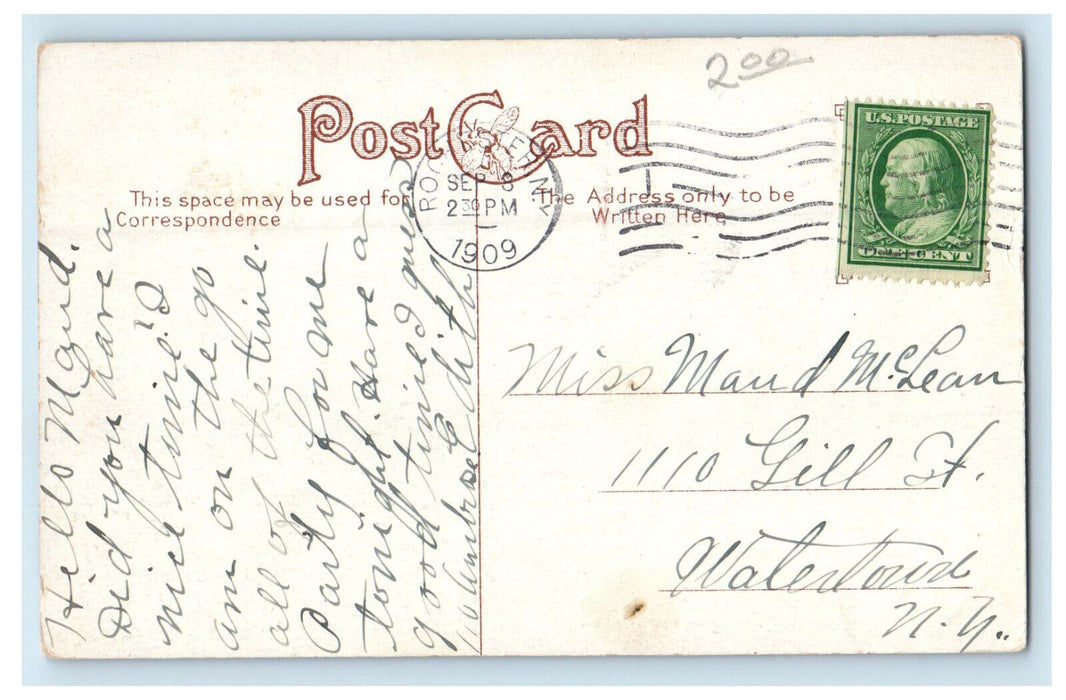 2.00
PostCard
This space may be used for
Correspondence
The Address only to be
Written Here
SEP 8
2 30 PM
1909
N.Y.
U.S. POSTAGE
CENT
Hello Maud.
Did you have a
nice time'd
am on the go
all of the time.
Party for me
tonight. Have a
good time d guess
Edith
Miss Maud McLean
1110 Gill St.
Watertown
N.Y.